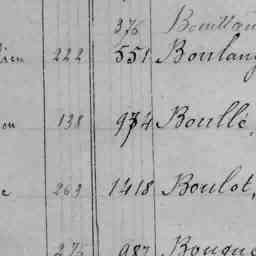 376 Bouillau
222 551 Boulang
on 138 974 Boullé,
e 269 1418 Boulot,
275 987 Bouque